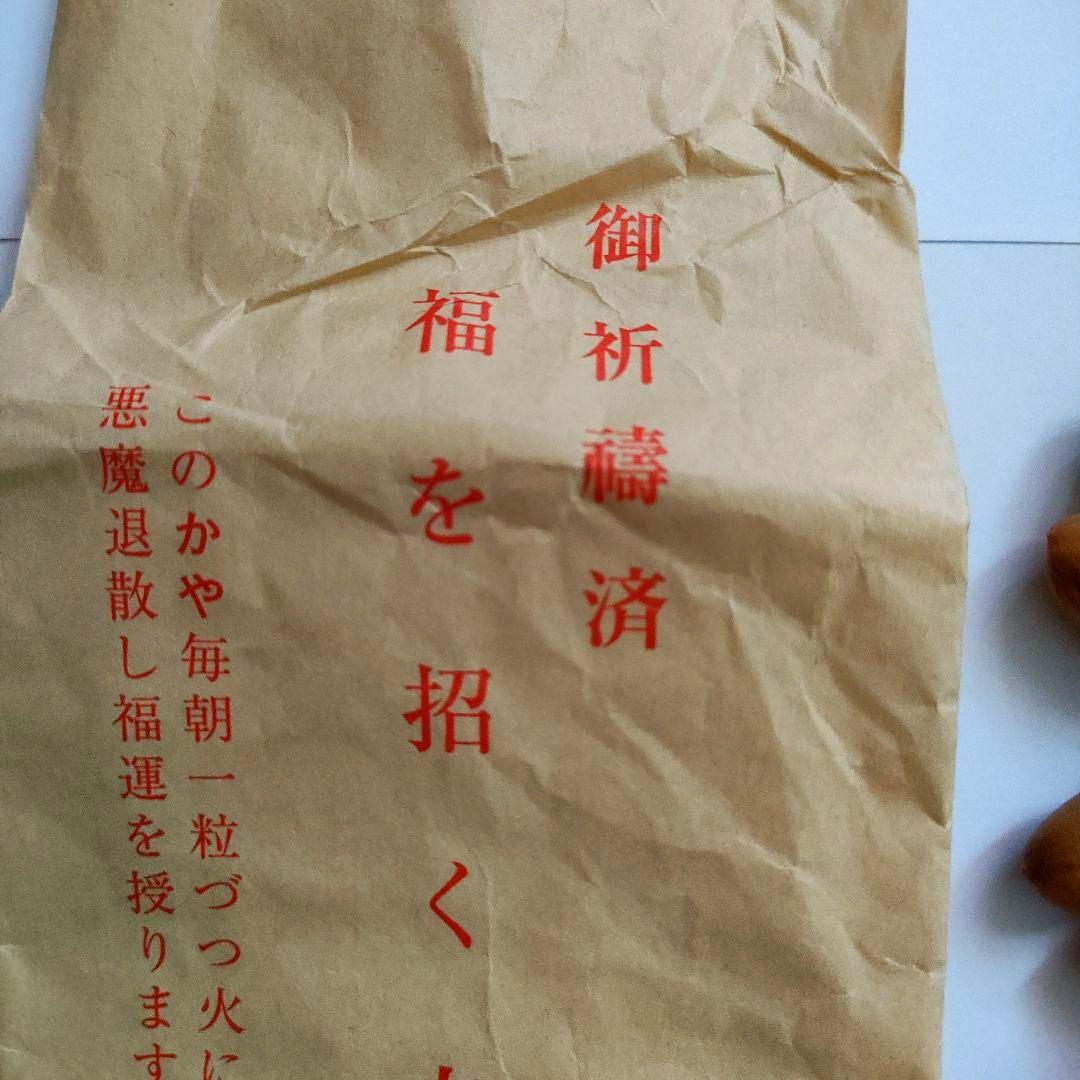 御祈禱済
福を招く
このかや毎朝一粒づつ火に
悪魔退散し福運を授ります